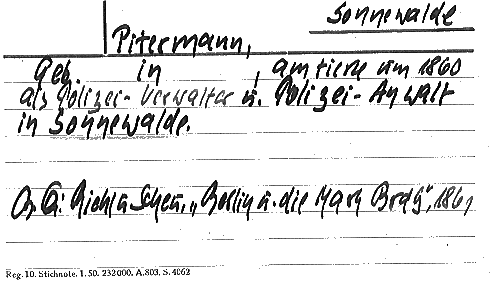 Sonnewalde
Pitermann,
geb. in , amtierte um 1860
als Polizei-Verwalter u. Polizei-Anwalt
in Sonnewalde.
Qu: Riehl u. Scheu, "Berlin u. die Mark Brdbg", 1861
Reg. 10. Stichnote. 1. 50. 232000. A.803. S. 4062